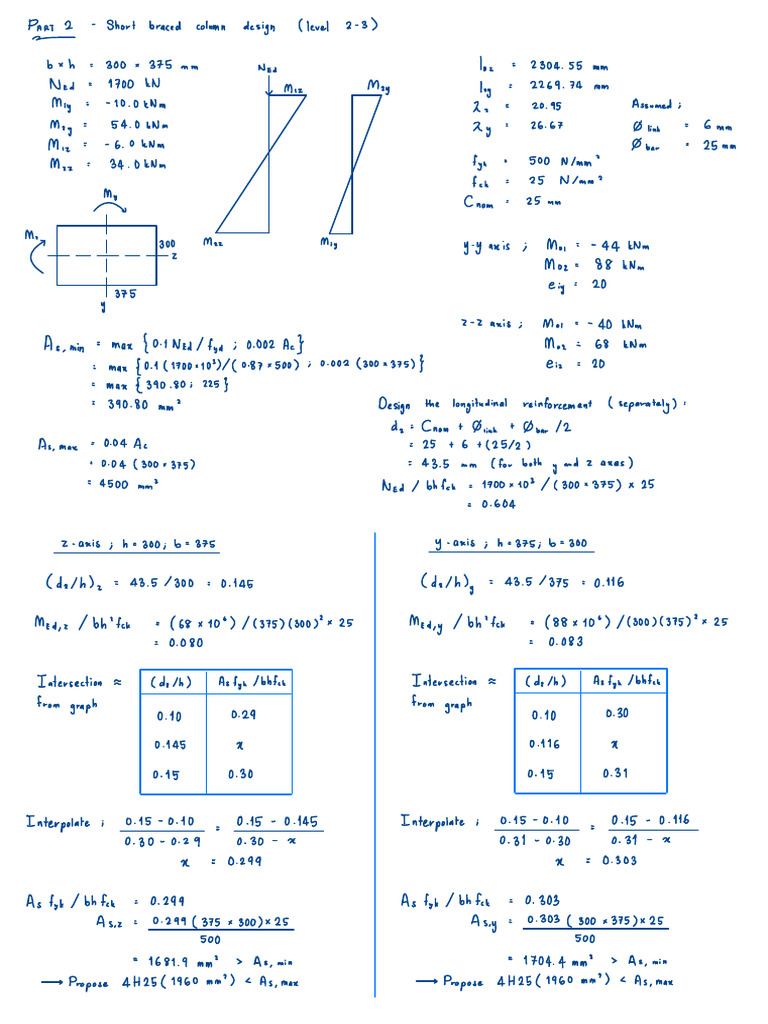 PART 2 - Short braced column design (level 2-3)
b × h = 300 × 375 mm
NEd = 1700 kN
M1y = -10.0 kNm
M2y = 54.0 kNm
M1z = -6.0 kNm
M2z = 34.0 kNm
NEd
M1z
M2y
M2z
M1y
l0z = 2304.55 mm
l0y = 2269.74 mm
λz = 20.95
λy = 26.67
fyk = 500 N/mm²
fck = 25 N/mm²
Cnom = 25 mm
Assumed;
Ølink = 6 mm
Øbar = 25 mm
My
Mz
300
z
375
y
y-y axis ; M01 = -44 kNm
M02 = 88 kNm
eiy = 20
z-z axis ; M01 = -40 kNm
M02 = 68 kNm
eiz = 20
As,min = max {0.1 NEd / fyd ; 0.002 Ac}
= max {0.1 (1700×10³)/(0.87×500) ; 0.002 (300×375)}
= max {390.80 ; 225}
= 390.80 mm²
As,max = 0.04 Ac
= 0.04 (300×375)
= 4500 mm²
Design the longitudinal reinforcement (separately) :
d2 = Cnom + Ølink + Øbar /2
= 25 + 6 + (25/2)
= 43.5 mm (for both y and z axes)
NEd / bhfck = 1700×10³ / (300×375) × 25
= 0.604
z-axis ; h=300; b=375
(d2/h)z = 43.5 /300 = 0.145
MEd,z / bh²fck = (68 × 10⁶) /(375)(300)² × 25
= 0.080
Intersection ≈
from graph
(d2/h) As fyk /bhfck
0.10 0.29
0.145 x
0.15 0.30
Interpolate ; 0.15 - 0.10 / 0.30 - 0.29 = 0.15 - 0.145 / 0.30 - x
x = 0.299
As fyk / bhfck = 0.299
As,z = 0.299 (375 × 300) × 25 / 500
= 1681.9 mm² > As,min
→ Propose 4H25 (1960 mm²) < As,max
y-axis ; h=375; b=300
(d2/h)y = 43.5 /375 = 0.116
MEd,y / bh²fck = (88 × 10⁶) /(300)(375)² × 25
= 0.083
Intersection ≈
from graph
(d2/h) As fyk /bhfck
0.10 0.30
0.116 x
0.15 0.31
Interpolate ; 0.15 - 0.10 / 0.31 - 0.30 = 0.15 - 0.116 / 0.31 - x
x = 0.303
As fyk / bhfck = 0.303
As,y = 0.303 (300 × 375) × 25 / 500
= 1704.4 mm² > As,min
→ Propose 4H25 (1960 mm²) < As,max